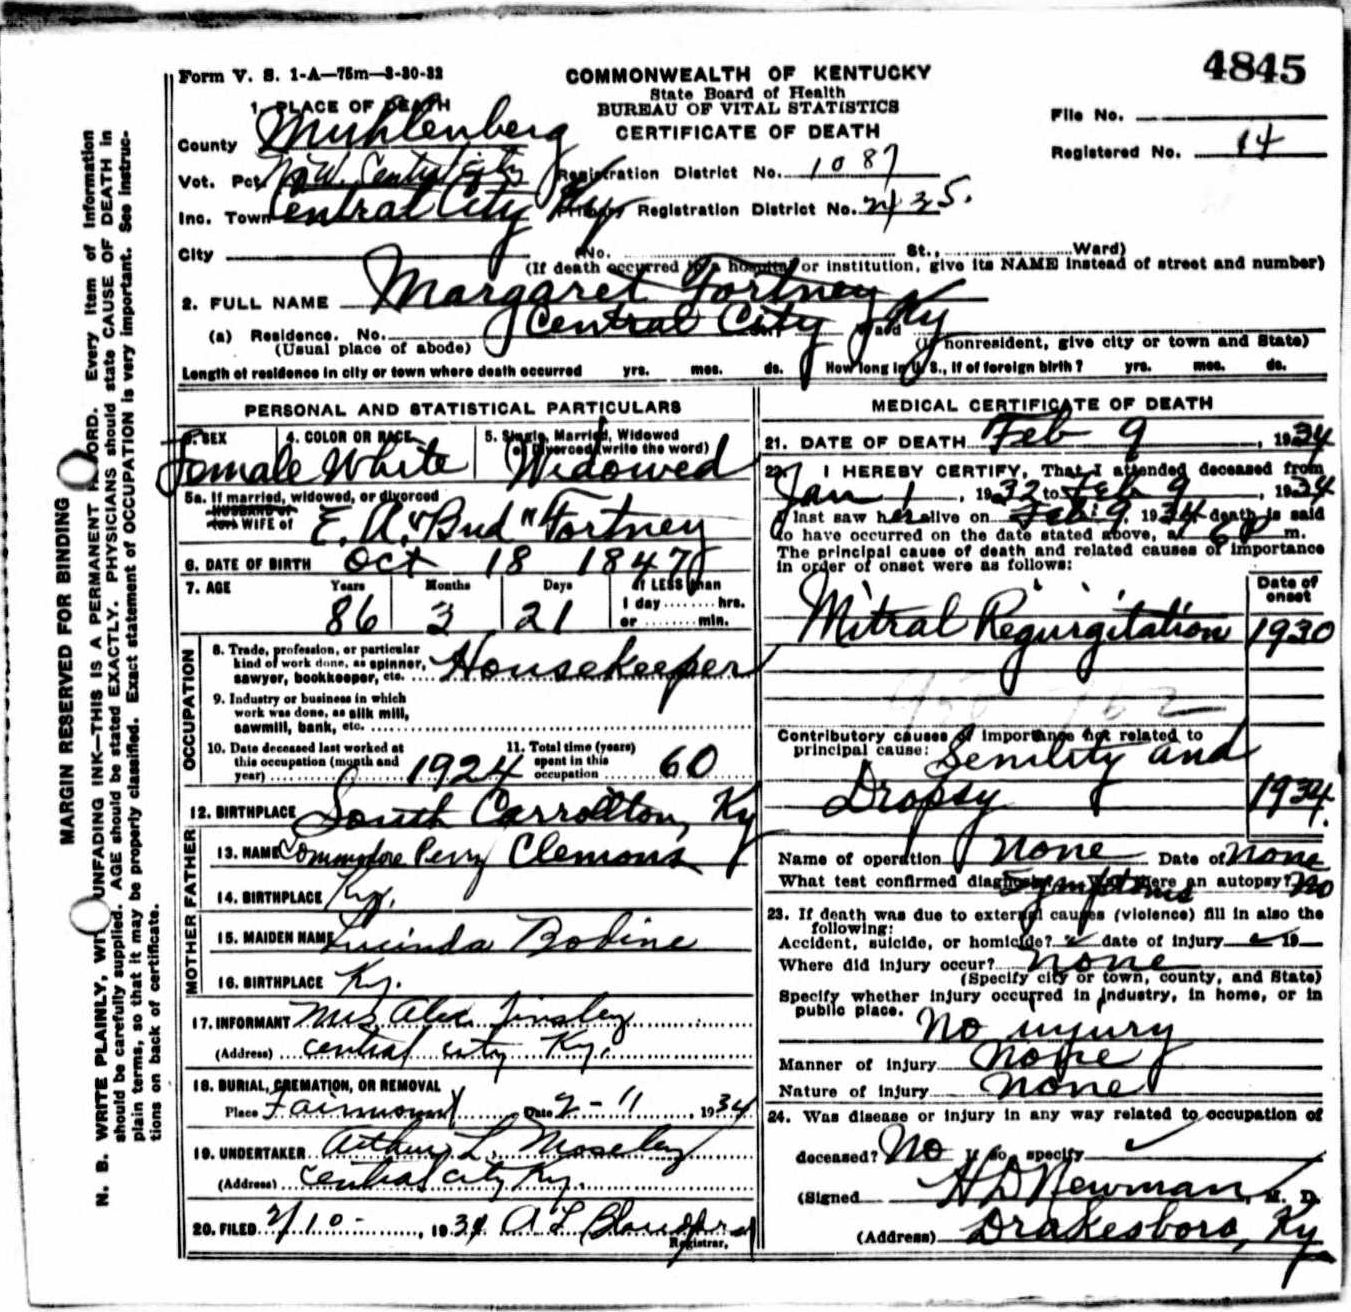 4845
Form V. S. 1-A—75m—3-30-32
COMMONWEALTH OF KENTUCKY
State Board of Health
BUREAU OF VITAL STATISTICS
CERTIFICATE OF DEATH
File No.
Registered No. 14
1. PLACE OF DEATH
County Muhlenberg
Vot. Pct. N.W. Central City
Registration District No. 1087
Inc. Town Central City Ky
Primary Registration District No. 2435.
City (No. St., Ward)
(If death occurred in a hospital or institution, give its NAME instead of street and number)
2. FULL NAME Margaret Fortney
(a) Residence. No. Central City Ky
(Usual place of abode) (If nonresident, give city or town and State)
Length of residence in city or town where death occurred yrs. mos. ds. How long in U. S., if of foreign birth? yrs. mos. ds.
PERSONAL AND STATISTICAL PARTICULARS
3. SEX 4. COLOR OR RACE 5. Single, Married, Widowed
or Divorced (write the word)
Female White Widowed
5a. If married, widowed, or divorced
HUSBAND of
(or) WIFE of E. A. "Bud" Fortney
6. DATE OF BIRTH Oct 18 1847
7. AGE Years Months Days If LESS than
1 day hrs.
or min.
86 3 21
OCCUPATION
8. Trade, profession, or particular
kind of work done, as spinner,
sawyer, bookkeeper, etc. Housekeeper
9. Industry or business in which
work was done, as silk mill,
sawmill, bank, etc.
10. Date deceased last worked at
this occupation (month and
year) 1924
11. Total time (years)
spent in this
occupation 60
12. BIRTHPLACE South Carrollton, Ky
FATHER
13. NAME Commodore Perry Clemons
14. BIRTHPLACE Ky.
MOTHER
15. MAIDEN NAME Lucinda Bodine
16. BIRTHPLACE Ky.
17. INFORMANT Mrs. Alex. Tinsley
(Address) Central City Ky.
18. BURIAL, CREMATION, OR REMOVAL
Place Fairmount Date 2-11, 1934
19. UNDERTAKER Arthur L. Moseley
(Address) Central City Ky.
20. FILED 2/10-, 1934 A L
Registrar.
MEDICAL CERTIFICATE OF DEATH
21. DATE OF DEATH Feb 9, 1934
22. I HEREBY CERTIFY, That I attended deceased from
Jan 1, 1932 to Feb 9, 1934
I last saw her alive on Feb. 9, 1934 death is said
to have occurred on the date stated above, at 6 P m.
The principal cause of death and related causes of importance
in order of onset were as follows:
Date of
onset
Mitral Regurgitation 1930
Contributory causes of importance not related to
principal cause: Senility and
Dropsy 1934.
Name of operation none Date of none
What test confirmed diagnosis? Symptoms Was there an autopsy? No
23. If death was due to external causes (violence) fill in also the
following:
Accident, suicide, or homicide? date of injury 19
Where did injury occur? none
(Specify city or town, county, and State)
Specify whether injury occurred in industry, in home, or in
public place.
No injury
Manner of injury none
Nature of injury none
24. Was disease or injury in any way related to occupation of
deceased? No If so, specify
(Signed H D Newman, M. D.
(Address) Drakesboro, Ky
MARGIN RESERVED FOR BINDING
N. B. WRITE PLAINLY, WITH UNFADING INK—THIS IS A PERMANENT RECORD. Every item of information
should be carefully supplied. AGE should be stated EXACTLY. PHYSICIANS should state CAUSE OF DEATH in
plain terms, so that it may be properly classified. Exact statement of OCCUPATION is very important. See instruc-
tions on back of certificate.